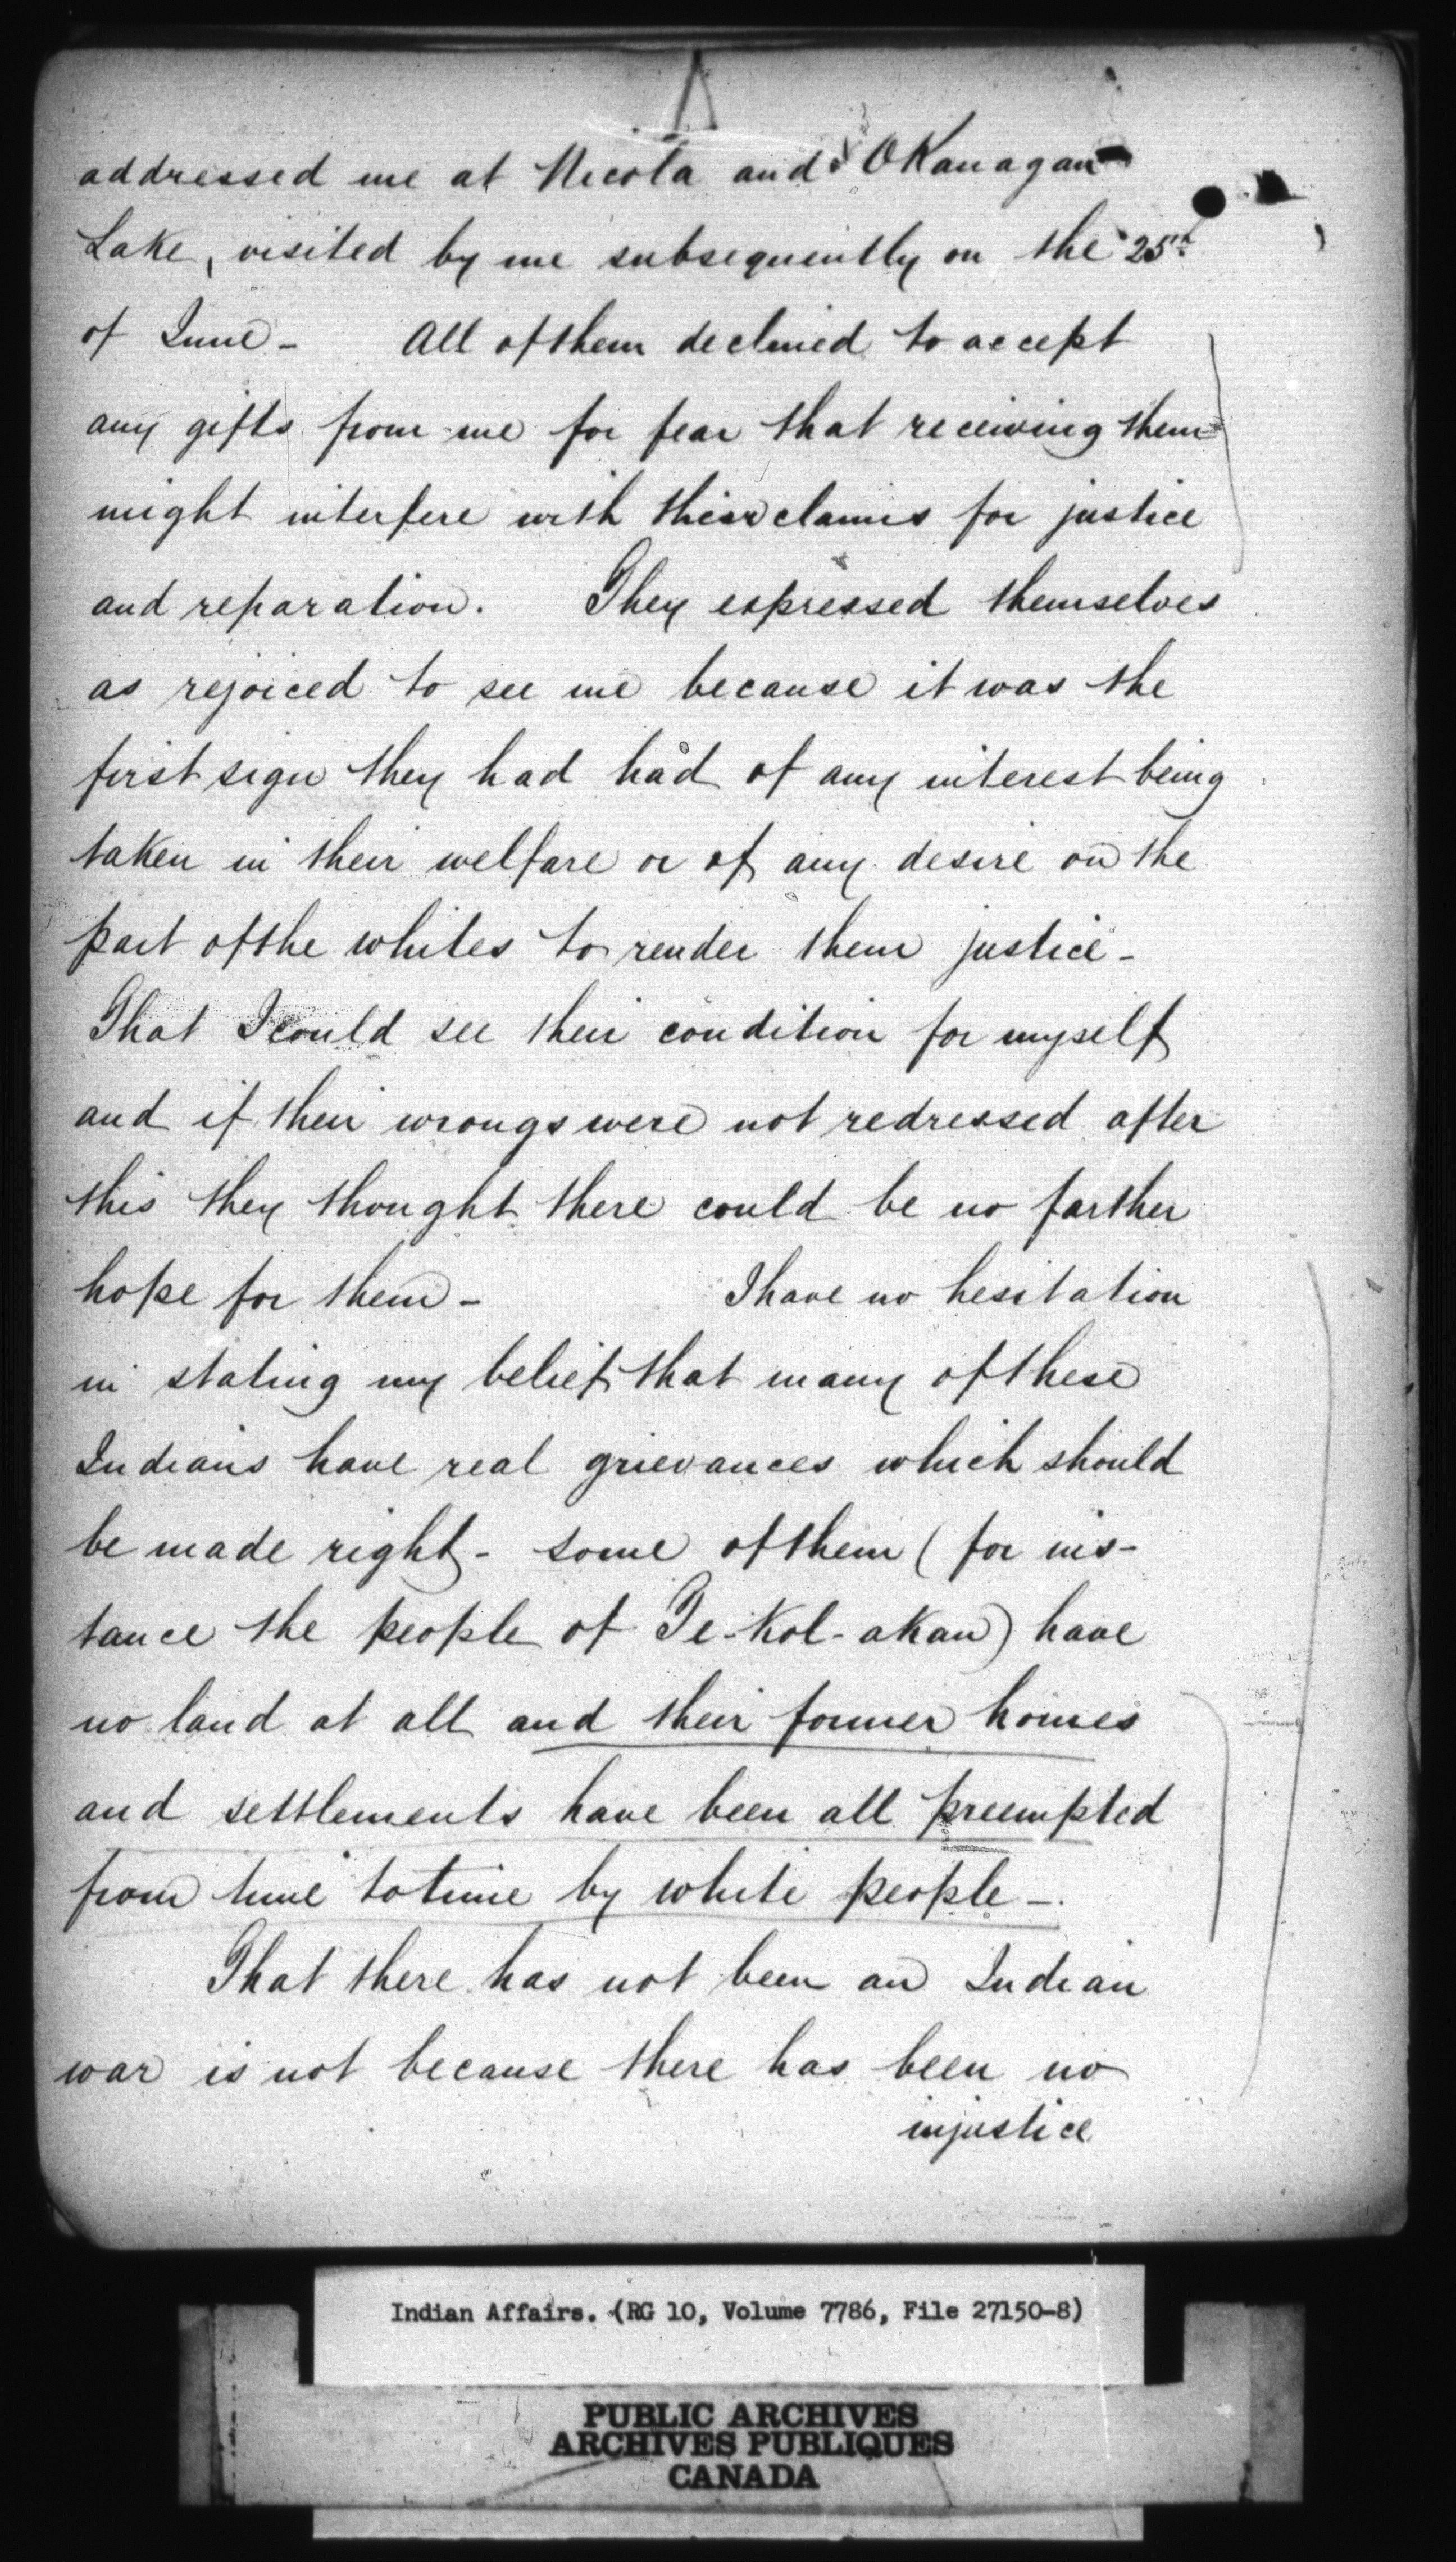 addressed me at Nicola and OKanagan
Lake, visited by me subsequently on the 25th
of June - All of them declined to accept
any gifts from me for fear that receiving them
might interfere with their claims for justice
and reparation. They expressed themselves
as rejoiced to see me because it was the
first sign they had had of any interest being
taken in their welfare or of any desire on the
part of the whites to render them justice -
That I could see their condition for myself
and if their wrongs were not redressed after
this they thought there could be no farther
hope for them - I have no hesitation
in stating my belief that many of these
Indians have real grievances which should
be made right - some of them (for ins-
tance the people of Te-Kol-aKan) have
no land at all and their former homes
and settlements have been all preempted
from time to time by white people -.
That there has not been an Indian
war is not because there has been no
injustice
Indian Affairs. (RG 10, Volume 7786, File 27150-8)
PUBLIC ARCHIVES
ARCHIVES PUBLIQUES
CANADA